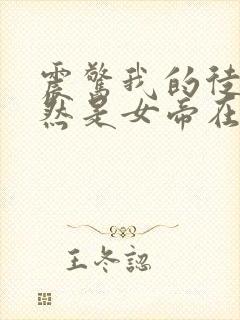 震驚我的徒
然是女帝在
王冬認